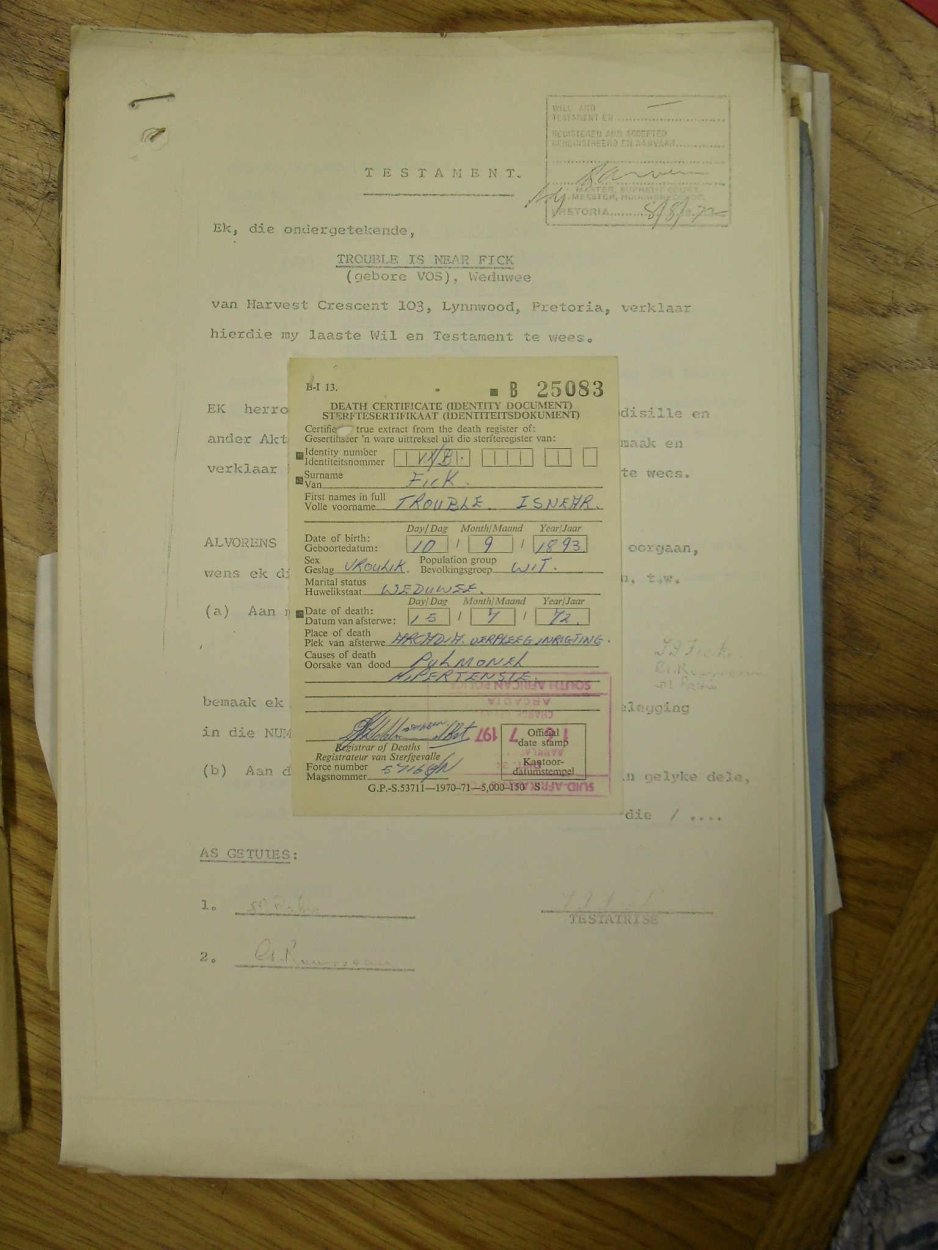 WILL AND
TESTAMENT EN
REGISTERED AND ACCEPTED
GEREGISTREER EN AANVAAR
MASTER, SUPREME COURT,
MEESTER, HOOGGEREGSHOF,
PRETORIA
TESTAMENT.
Ek, die ondergetekende,
TROUBLE IS NEAR FICK
(gebore VOS), Weduwee
van Harvest Crescent 103, Lynnwood, Pretoria, verklaar
hierdie my laaste Wil en Testament te wees.
B-I 13. B 25083
DEATH CERTIFICATE (IDENTITY DOCUMENT)
STERFTESERTIFIKAAT (IDENTITEITSDOKUMENT)
Certifie true extract from the death register of:
Gesertifiseer 'n ware uittreksel uit die sterfteregister van:
Identity number
Identiteitsnommer
Surname
Van FICK.
First names in full
Volle voorname TROUBLE ISNEAR.
Day/Dag Month/Maand Year/Jaar
Date of birth:
Geboortedatum: 10 / 9 / 1893
Sex Population group
Geslag VROULIK. Bevolkingsgroep WIT.
Marital status
Huwelikstaat WEDUWEE.
Day/Dag Month/Maand Year/Jaar
Date of death:
Datum van afsterwe: 15 / 7 / 72.
Place of death
Plek van afsterwe ARCADIA VERPLEEGINRIGTING.
Causes of death
Oorsake van dood PULMONEL
HIPERTENSIE.
Registrar of Deaths
Registrateur van Sterfgevalle
Force number
Magsnommer
Official
date stamp
Kantoor-
datumstempel
SOUTH AFRICAN POLICE
ARCADIA
7 197
SUID-AFRIKA
G.P.-S.53711—1970-71—5,000-150 S
EK herro disille en
ander Akt maak en
verklaar te wees.
ALVORENS oorgaan,
wens ek di n, t.w.
(a) Aan m
T J Fick
bemaak ek elegging
in die NUM
(b) Aan d n gelyke dele,
die / ....
AS GETUIES:
1.
TESTATRISE
2.